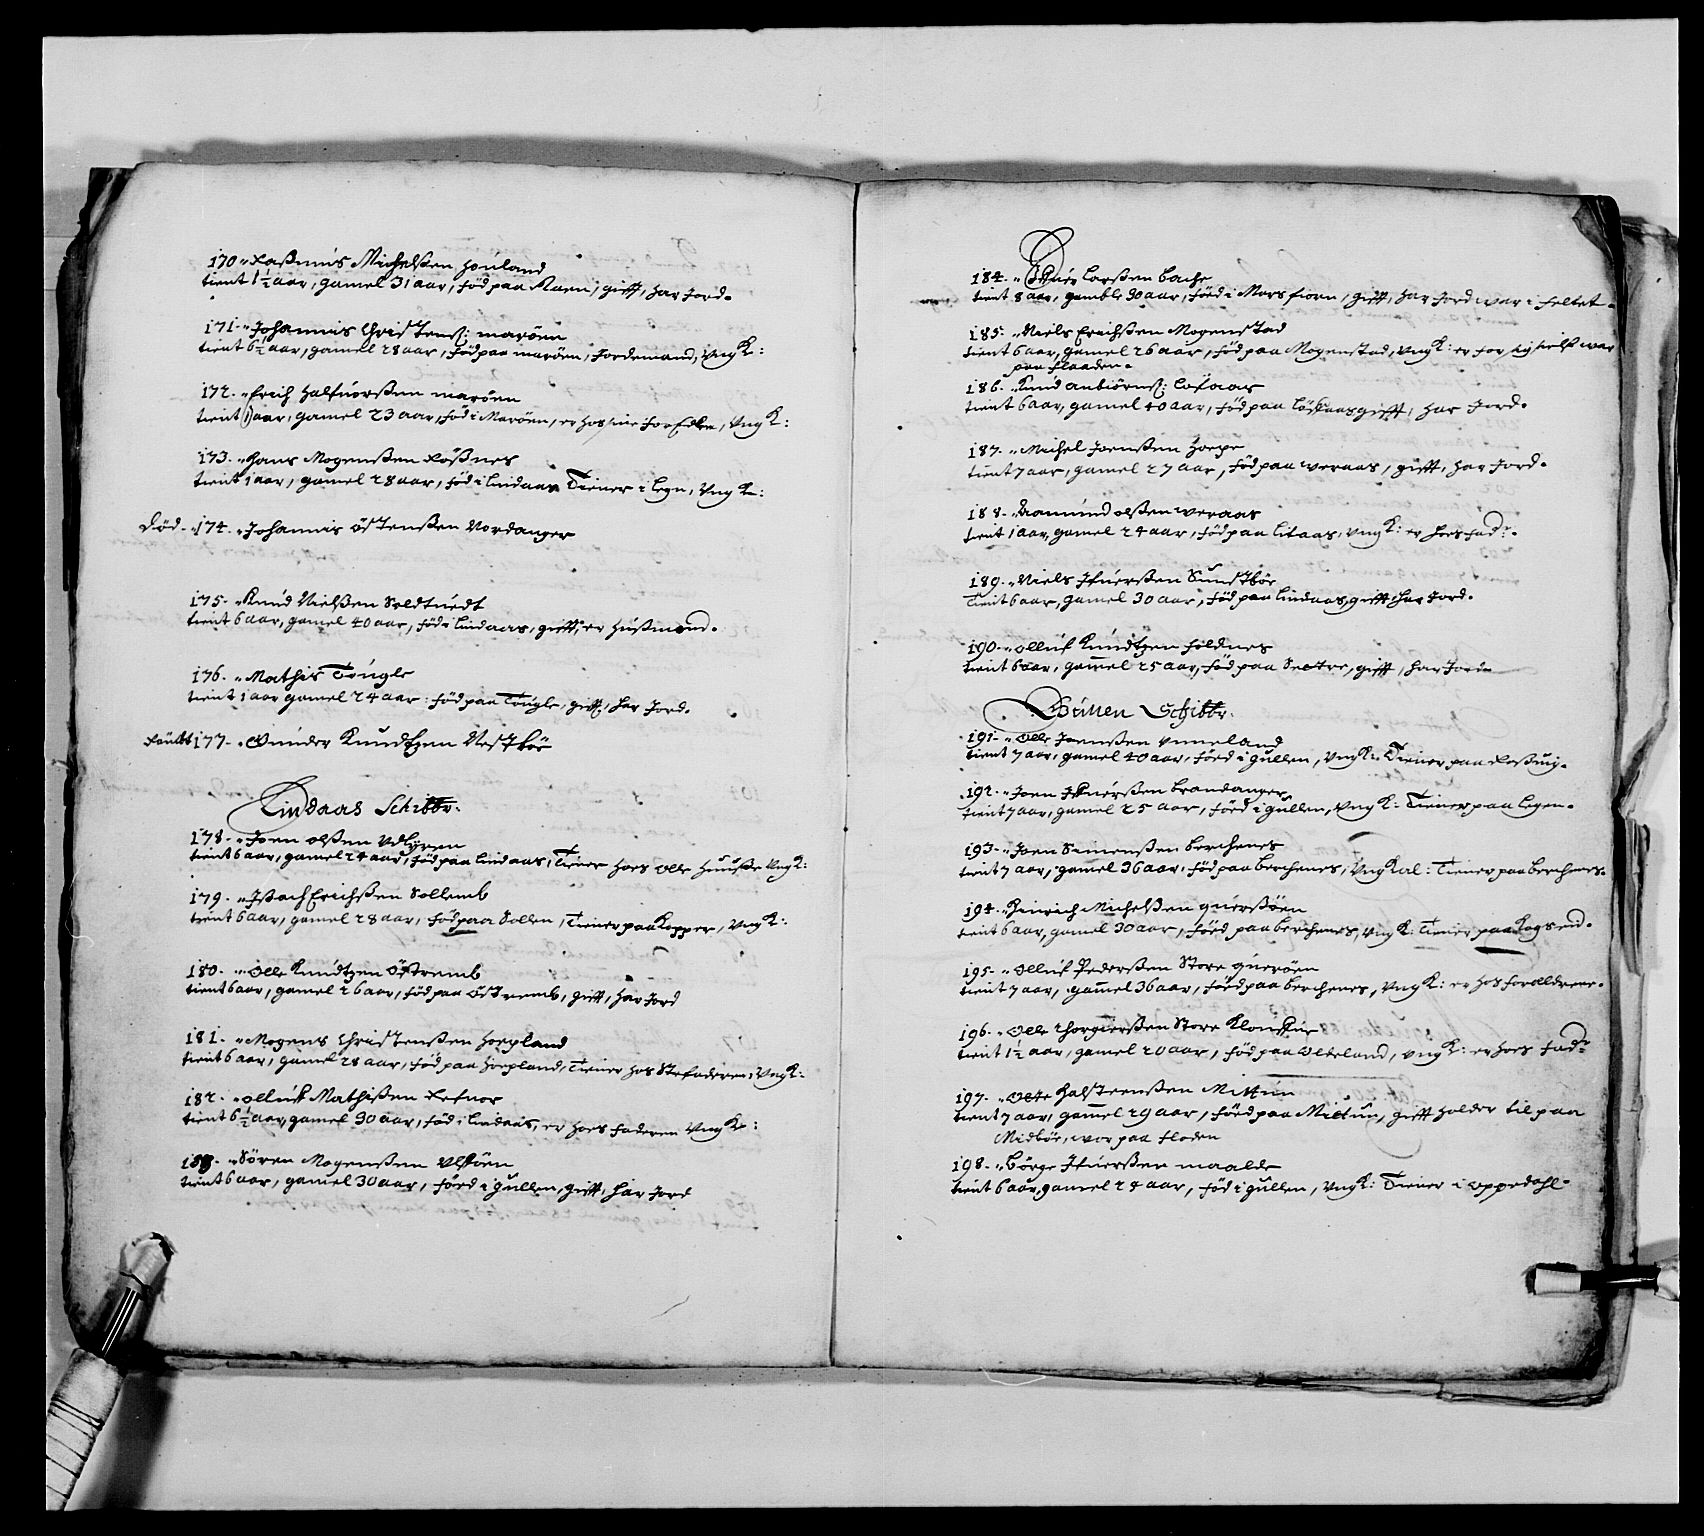 170 „ Raßmus Michelßen Houland
tient 1½ aar, gamel 31 aar, föd paa Raen, gifft, har Jord.
171 „ Johannis Christenß: maröen
tient 6½ aar, gamel 28 aar, föd paa maröen, Jordemand, Ung K:
172. „ Erich Halfuorßen maröen
tient 1) aar, gamel 23 aar, föd i Maröen, er hos sine forEldre, Ung K:
173. „ Hans Mogenßen Roßnes
tient 1 aar, gamel 28 aar, föd i lindaas Tiener i legn, Ung K:
död. „ 174. „ Johannis östenßen Nordanger
175. „ Knud Nielßen Seldtuedt
tient 6 aar, gamel 40 aar, föd i lindaas, gifft, er Hußmand.
176. „ Mathis Tougle
tient 1 aar gamel 24 aar: föd paa Tougle, gifft, har Jord.
177. „ Gunder Knudtzen Vestböe
Lindaas Schibbr:
178. „ Joen olßen Vdlyren
tient 6 aar, gamel 24 aar, föd paa lindaas, Tiener hoes olle Huußbe Ung K:
179. „ Ißach Erichßen Sollemb
tient 6 aar, gamel 28 aar, föd paa Sollen, Tiener paa Kopper, Ung K:
180. „ olle Knudtzen Östremb
tient 6 aar, gamel 26 aar, föd paa Östremb, gifft, har Jord
181. „ Mogens Christenßen Hopland
tient 6 aar, gamel 28 aar, föd paa Hopland, Tiener hos Steffaderen, Ung K:
182. „ olluf Mathißen Refnor
tient 6½ aar, gamel 30 aar, föd i lindaas, er hoes faderen Ung K:
183. „ Sören Mogenßen
tient 6 aar, gamel 30 aar, föed i gullen, gifft, har Jord
184. „ Ifuer Larßen bache
tient 8 aar, gamble 30 aar, föed i Morsfiorn, gifft, har Jord war i feltet.
185. „ Niels Erichßen Mogenstad
tient 6 aar, gamel 26 aar, föd paa Mogenstad, Ung K: er for sig sielf war
paa flaaden.
186. „ Knud anbiörnß:
tient 6 aar, gamel 40 aar, föd paa gifft, har Jord.
187. „ Michel Joenßen Hope
tient 7 aar, gamel 27 aar, föd paa weraas, gifft, har Jord.
188. „ Aamund olßen weraas
tient 1 aar, gamel 24 aar, föd paa litaas, Ung K: er hoes fad:r.
189. „ Niels Ifuerßen Sundtböe
tient 6 aar, gamel 30 aar, föd paa lindaas, gifft, har Jord.
190. „ olluf Knudtzen foldnes
tient 6 aar, gamel 25 aar, föd paa Seetre, gifft, har Jord.
Gullen Schibbr:
191. „ olle Joenßen vnneland
tient 7 aar, gamel 40 aar, föed i gullen, Ung K: Tiener paa
192. „ Joen Ifuerßen brandanger
tient 7 aar, gamel 25 aar, föed i gullen, Ung K: Tiener paa legen.
193. „ Joen Simenßen berchenes
tient 7 aar, gamel 36 aar, föd paa berchenes, Ung Kal: Tiener paa berchenes.
194. „ Hinrich Michelßen guerßöen
tient 6 aar, gamel 30 aar, föed paa berchenes, Ung K: Tiener paa Kogseid.
195. „ olluf Pederßen Store queröen
tient 7 aar, gamel 36 aar, föed paa berchenes, Ung K: er hos foralldrene.
196. „ olle Thorgierßen Store
tient 1½ aar, gamel 20 aar, föd paa olteland, Ung K: er hoes fad:r
197. „ olle Halsteenßen Mittun
tient 7 aar, gamel 29 aar, föed paa Mittun, gifft holder til paa
Midböe, wor paa floden
198. „ Börge Ifuerßen maalde
tient 6 aar, gamel 28 aar, föd i gullen, Ung K: Tiener i oppedahl.